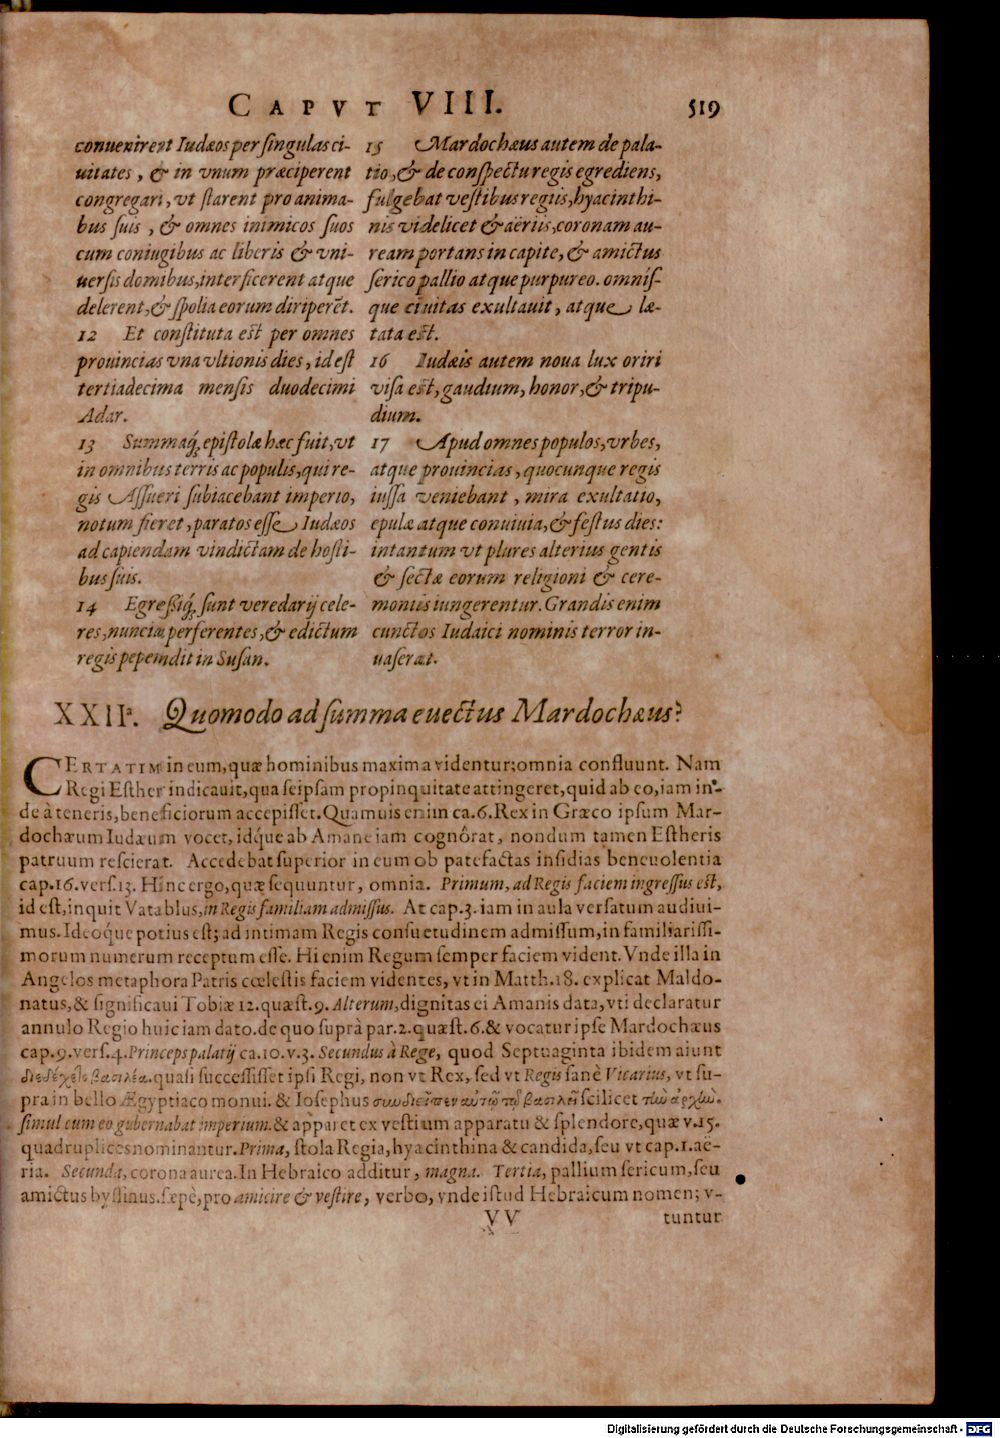 CAPVT VIII. 519
conuenirent Iudæos per singulas ci-
uitates, & in vnum præciperent
congregari, vt starent pro anima-
bus suis, & omnes inimicos suos
cum coniugibus ac liberis & vni-
uersis domibus, interficerent atque
delerent, & spolia eorum diriperēt.
12 Et constituta est per omnes
prouincias vna vltionis dies, id est
tertiadecima mensis duodecimi
Adar.
13 Summaq́; epistolæ hæc fuit, vt
in omnibus terris ac populis, qui re-
gis Assueri subiacebant imperio,
notum fieret, paratos esse Iudæos
ad capiendam vindictam de hosti-
bus suis.
14 Egressiq́; sunt veredarij cele-
res, nuncia perferentes, & edictum
regis pependit in Susan.
15 Mardochæus autem de pala-
tio, & de conspectu regis egrediens,
fulgebat vestibus regiis, hyacinthi-
nis videlicet & aëriis, coronam au-
ream portans in capite, & amictus
serico pallio atque purpureo. omnis-
que ciuitas exultauit, atque læ-
tata est.
16 Iudæis autem noua lux oriri
visa est, gaudium, honor, & tripu-
dium.
17 Apud omnes populos, vrbes,
atque prouincias, quocunque regis
iussa veniebant, mira exultatio,
epulæ atque conuiuia, & festus dies:
intantum vt plures alterius gentis
& sectæ eorum religioni & cere-
moniis iungerentur. Grandis enim
cunctos Iudaici nominis terror in-
uaserat.
XXIIa. Quomodo ad summa euectus Mardochæus?
CERTATIM in eum, quæ hominibus maxima videntur; omnia confluunt. Nam
Regi Esther indicauit, qua seipsam propinquitate attingeret, quid ab eo, iam in-
de à teneris, beneficiorum accepisset. Quamuis enim ca. 6. Rex in Græco ipsum Mar-
dochæum Iudæum vocet, idq́ue ab Amane iam cognôrat, nondum tamen Estheris
patruum rescierat. Accedebat superior in eum ob patefactas insidias beneuolentia
cap. 16. vers. 13. Hinc ergo, quæ sequuntur, omnia. Primum, ad Regis faciem ingressus est,
id est, inquit Vatablus, in Regis familiam admissus. At cap. 3. iam in aula versatum audiui-
mus. Ideoque potius est; ad intimam Regis consuetudinem admissum, in familiarissi-
morum numerum receptum esse. Hi enim Regum semper faciem vident. Vnde illa in
Angelos metaphora Patris cœlestis faciem videntes, vt in Matth. 18. explicat Maldo-
natus, & significaui Tobiæ 12. quæst. 9. Alterum, dignitas ei Amanis data, vti declaratur
annulo Regio huic iam dato. de quo suprà par. 2. quæst. 6. & vocatur ipse Mardochæus
cap. 9. vers. 4. Princeps palatij ca. 10. v. 3. Secundus à Rege, quod Septuaginta ibidem aiunt
διεδέχετο βασιλέα. quasi successisset ipsi Regi, non vt Rex, sed vt Regis sanè Vicarius, vt su-
pra in bello Ægyptiaco monui. & Iosephus συνδιεῖπεν αὐτῷ τῷ βασιλεῖ scilicet τὴν ἀρχὴν.
simul cum eo gubernabat imperium. & apparet ex vestium apparatu & splendore, quæ v. 15.
quadruplices nominantur. Prima, stola Regia, hyacinthina & candida, seu vt cap. 1. aë-
ria. Secunda, corona aurea. In Hebraico additur, magna. Tertia, pallium sericum, seu
amictus byssinus. sæpè, pro amicire & vestire, verbo, vnde istud Hebraicum nomen; v-
VV tuntur
Digitalisierung gefördert durch die Deutsche Forschungsgemeinschaft - DFG